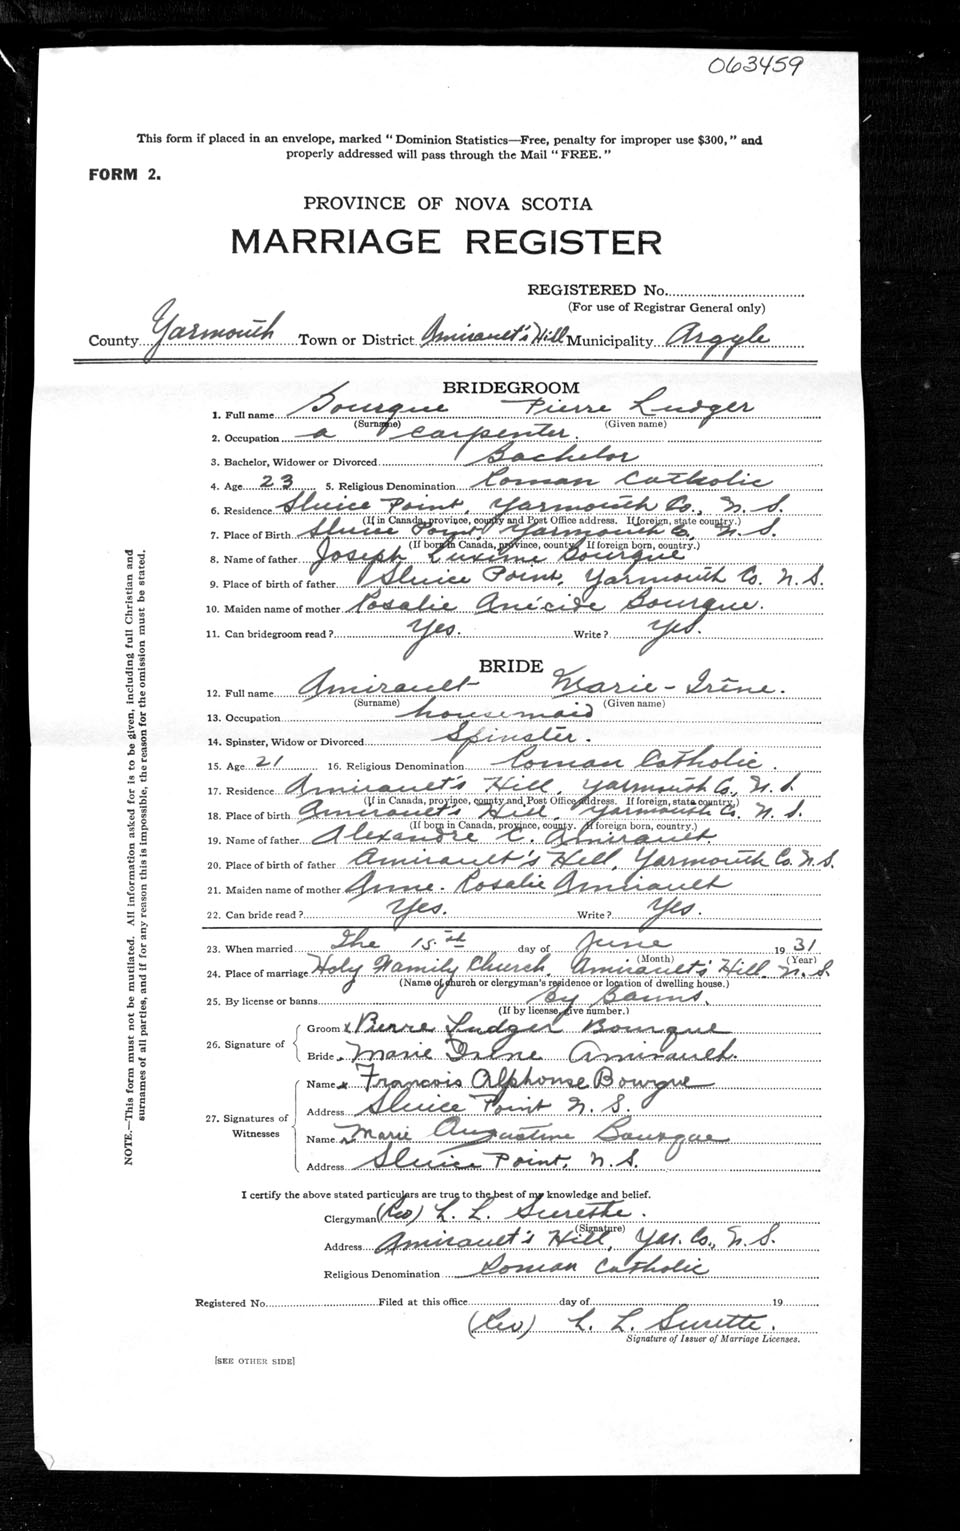 063459
This form if placed in an envelope, marked "Dominion Statistics—Free, penalty for improper use $300," and
properly addressed will pass through the Mail "FREE."
FORM 2.
PROVINCE OF NOVA SCOTIA
MARRIAGE REGISTER
REGISTERED No.
(For use of Registrar General only)
County Yarmouth Town or District Amirault's Hill Municipality Argyle
BRIDEGROOM
1. Full name Bourque Pierre Ludger
(Surname) (Given name)
2. Occupation a carpenter.
3. Bachelor, Widower or Divorced Bachelor
4. Age 23 5. Religious Denomination Roman Catholic
6. Residence Sluice Point, Yarmouth Co., N. S.
(If in Canada, province, county and Post Office address. If foreign, state country.)
7. Place of Birth Sluice Point, Yarmouth Co., N. S.
(If born in Canada, province, county. If foreign born, country.)
8. Name of father Joseph Luxime Bourque
9. Place of birth of father Sluice Point, Yarmouth Co. N. S.
10. Maiden name of mother Rosalie Anécide Bourque.
11. Can bridegroom read? Yes. Write? Yes.
BRIDE
12. Full name Amirault Marie-Irène.
(Surname) (Given name)
13. Occupation housemaid
14. Spinster, Widow or Divorced Spinster.
15. Age 21 16. Religious Denomination Roman Catholic.
17. Residence Amirault's Hill, Yarmouth Co., N. S.
(If in Canada, province, county and Post Office address. If foreign, state country.)
18. Place of birth Amirault's Hill, Yarmouth Co. N. S.
(If born in Canada, province, county. If foreign born, country.)
19. Name of father Alexandre C. Amirault.
20. Place of birth of father Amirault's Hill, Yarmouth Co. N. S.
21. Maiden name of mother Anne-Rosalie Amirault
22. Can bride read? Yes. Write? Yes.
23. When married The 15th day of June 1931
(Month) (Year)
24. Place of marriage Holy Family Church, Amirault's Hill, N. S.
(Name of church or clergyman's residence or location of dwelling house.)
25. By license or banns By Banns.
(If by license, give number.)
26. Signature of Groom x Pierre Ludger Bourque
Bride x Marie Irene Amirault.
27. Signatures of Witnesses
Name x Francois Alphonse Bourque
Address Sluice Point N. S.
Name x Marie Augustine Bourque
Address Sluice Point, N. S.
I certify the above stated particulars are true to the best of my knowledge and belief.
Clergyman (Rev) L. L. Surette.
(Signature)
Address Amirault's Hill, Yar. Co., N. S.
Religious Denomination Roman Catholic
Registered No. Filed at this office day of 19
(Rev) L. L. Surette.
Signature of Issuer of Marriage Licenses.
[SEE OTHER SIDE]
NOTE.—This form must not be mutilated. All information asked for is to be given, including full Christian and
surnames of all parties, and if for any reason this is impossible, the reason for the omission must be stated.